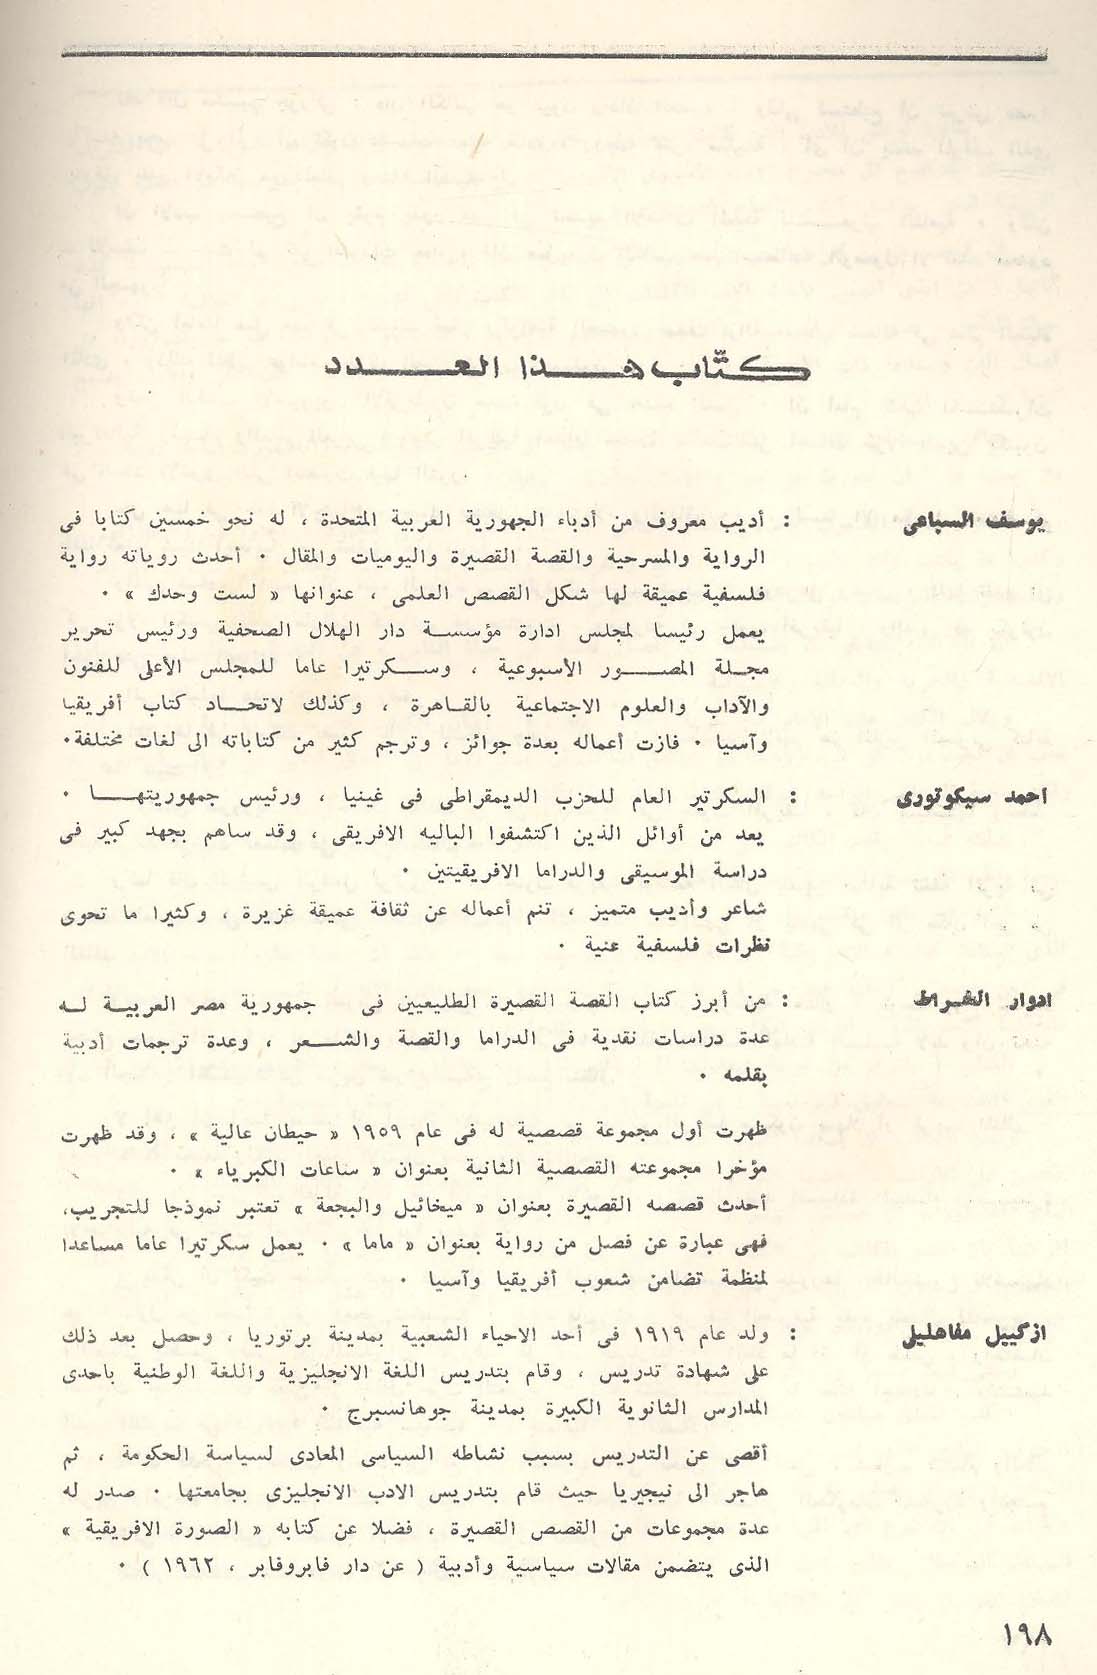 كتّاب هذا العدد
يوسف السباعى : أديب معروف من أدباء الجهورية العربية المتحدة ، له نحو خمسين كتابا فى
الرواية والمسرحية والقصة القصيرة واليوميات والمقال ٠ أحدث روياته رواية
فلسفية عميقة لها شكل القصص العلمى ، عنوانها « لست وحدك » ٠
يعمل رئيسا لمجلس ادارة مؤسسة دار الهلال الصحفية ورئيس تحرير
مجلة المصور الأسبوعية ، وسكرتيرا عاما للمجلس الأعلى للفنون
والآداب والعلوم الاجتماعية بالقاهرة ، وكذلك لاتحاد كتاب أفريقيا
وآسيا ٠ فازت أعماله بعدة جوائز ، وترجم كثير من كتاباته الى لغات مختلفة٠
احمد سيكوتورى : السكرتير العام للحزب الديمقراطى فى غينيا ، ورئيس جمهوريتها ٠
يعد من أوائل الذين اكتشفوا الباليه الافريقى ، وقد ساهم بجهد كبير فى
دراسة الموسيقى والدراما الافريقيتين ٠
شاعر وأديب متميز ، تنم أعماله عن ثقافة عميقة غزيرة ، وكثيرا ما تحوى
نظرات فلسفية غنية ٠
ادوار الخراط : من أبرز كتاب القصة القصيرة الطليعيين فى جمهورية مصر العربية له
عدة دراسات نقدية فى الدراما والقصة والشعر ، وعدة ترجمات أدبية
بقلمه ٠
ظهرت أول مجموعة قصصية له فى عام ١٩٥٩ « حيطان عالية » ، وقد ظهرت
مؤخرا مجموعته القصصية الثانية بعنوان « ساعات الكبرياء » ٠
أحدث قصصه القصيرة بعنوان « ميخائيل والبجعة » تعتبر نموذجا للتجريب،
فهى عبارة عن فصل من رواية بعنوان « ماما » ٠ يعمل سكرتيرا عاما مساعدا
لمنظمة تضامن شعوب أفريقيا وآسيا ٠
ازكييل مفاهليلى : ولد عام ١٩١٩ فى أحد الاحياء الشعبية بمدينة برتوريا ، وحصل بعد ذلك
على شهادة تدريس ، وقام بتدريس اللغة الانجليزية واللغة الوطنية باحدى
المدارس الثانوية الكبيرة بمدينة جوهانسبرج ٠
أقصى عن التدريس بسبب نشاطه السياسى المعادى لسياسة الحكومة ، ثم
هاجر الى نيجيريا حيث قام بتدريس الادب الانجليزى بجامعتها ٠ صدر له
عدة مجموعات من القصص القصيرة ، فضلا عن كتابه « الصورة الافريقية »
الذى يتضمن مقالات سياسية وأدبية ( عن دار فابروفابر ، ١٩٦٢ ) ٠
١٩٨